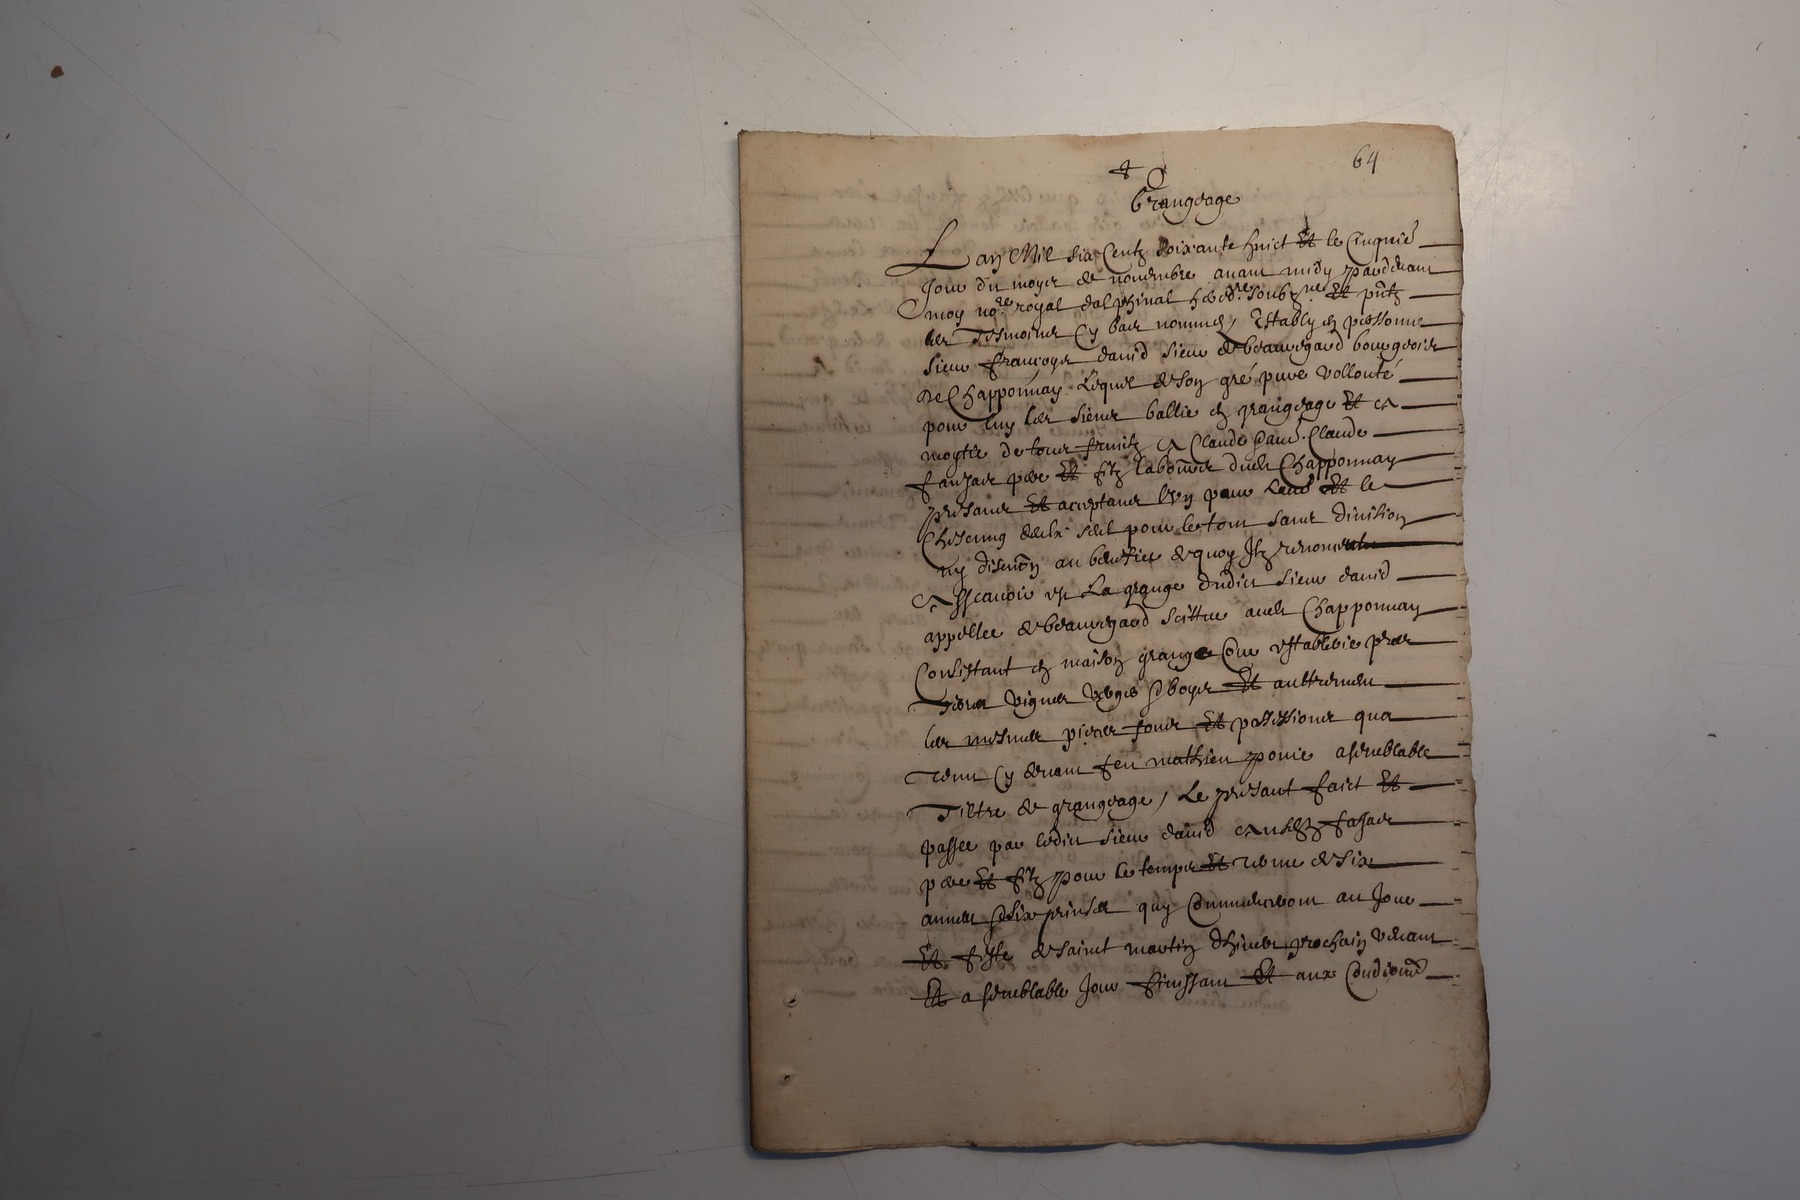 64
Grangeage
Lan Mil six Centz soixante huict Et le Cinquie
Jour du moys de novembre avant midy pardevant
moy no.re royal dalphinal hered.re soubz.ne Et pntz
les Tesmoins Cy bas nommes, Estably en personne
sieur françoys david sieur de beauregard bourgeois
de Chapponnay Lequel de son gré pure vollonté
pour luy les siens ballie en grangeage Et a
moytie de tous fruitz A Claude Claude
faujas pere Et filz laboureurs dudt Chapponnay
presans Et acceptans lun pour Laud Et le
Chescung deulx seul pour le tout sans division
ny discution au benefice de quoy Ilz renoncent
Asscavoir est La grange dudict sieur david
appellee de beauregard scittue audt Chapponnay
Consistant en maison grange Cour estableric pres
Terres vignes verges boys Et aultrement
les mesmes pieces fons Et possessions qua
Tenu Cy devant feu mathieu ponie a semblable
Tiltre de grangeage, Le presant faict Et
passee par ledict sieur david fajas
pere Et filz pour le temps Et terme de six
annees six prinses quy Commenceront au Jour
Et feste de saint martin dhiver prochain venant
Et a semblable Jour finissant Et aux Conditions